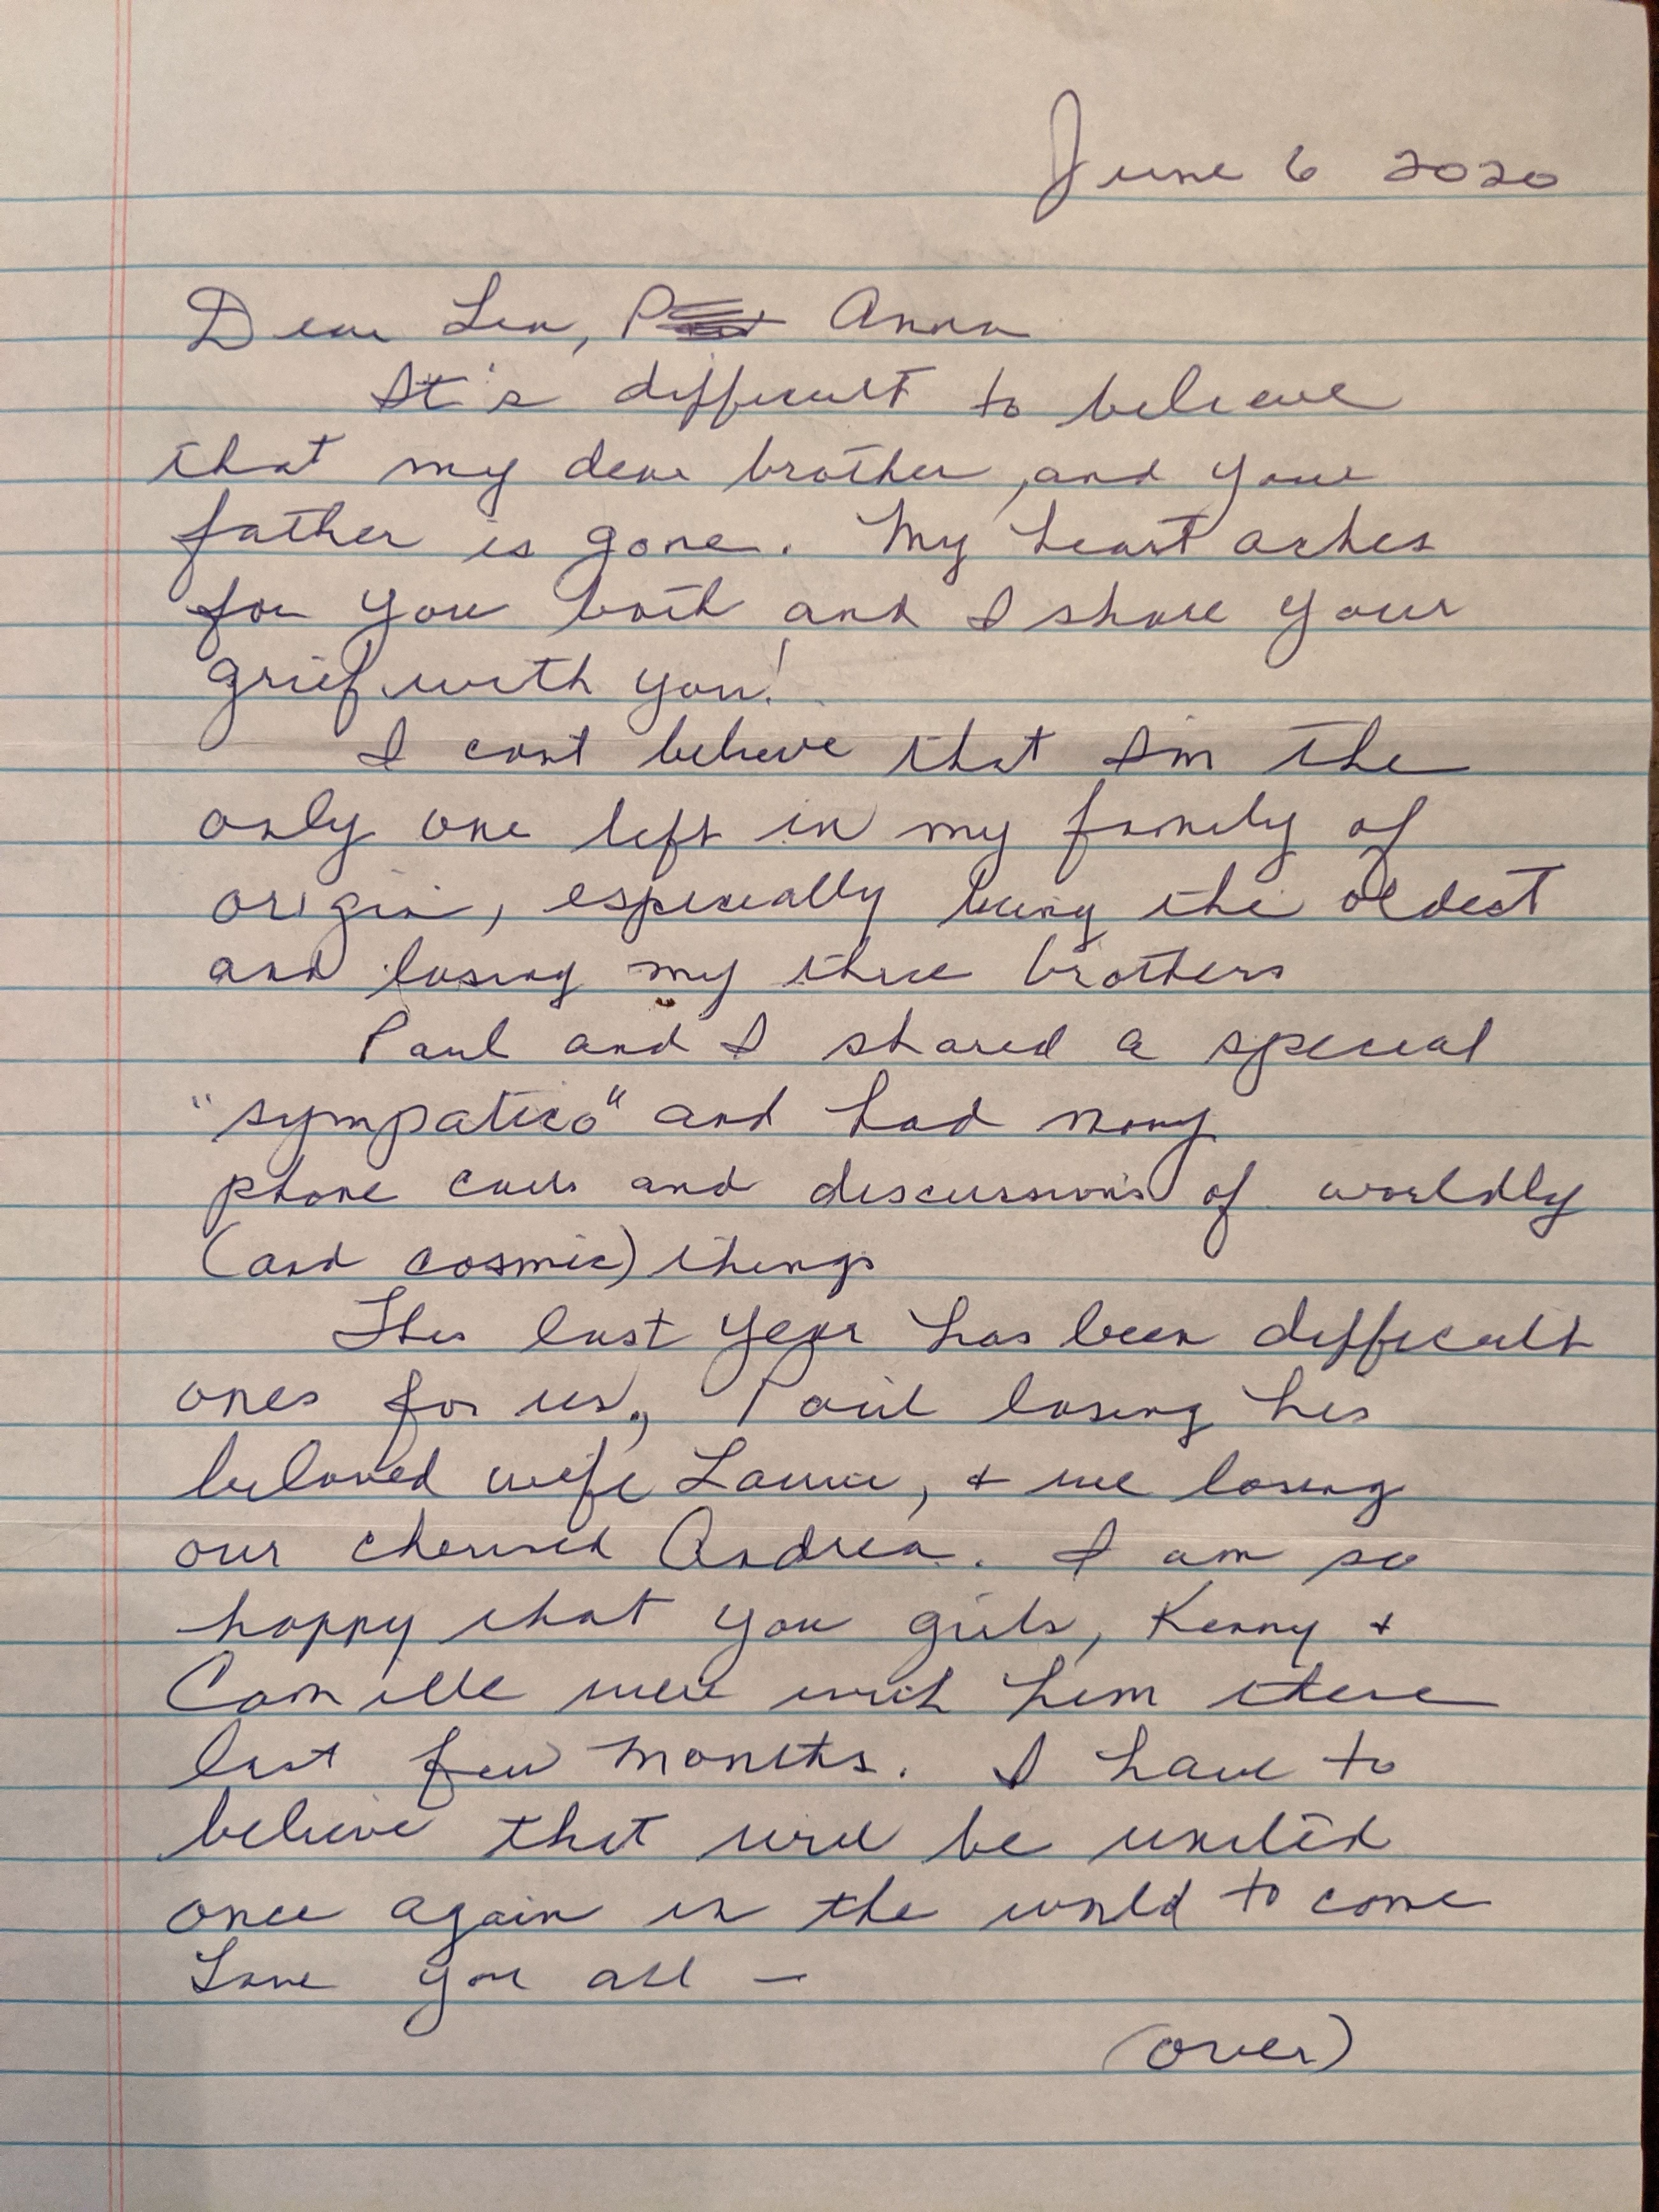 June 6 2020
Dear Lea, Anna
It's difficult to believe
that my dear brother, and your
father is gone. My heart aches
for you both and I share your
grief with you!
I cant believe that I'm the
only one left in my family of
origin, especially being the oldest
and losing my three brothers
Paul and I shared a special
"sympatico" and had many
phone calls and discussions of worldly
(and cosmic) things
This last year has been difficult
ones for us, Paul losing his
beloved wife Laurie, + we losing
our cherished Andrea. I am so
happy that you girls, Kenny +
Camille were with him these
last few months. I have to
believe that we'll be united
once again in the world to come
Love you all —
(over)